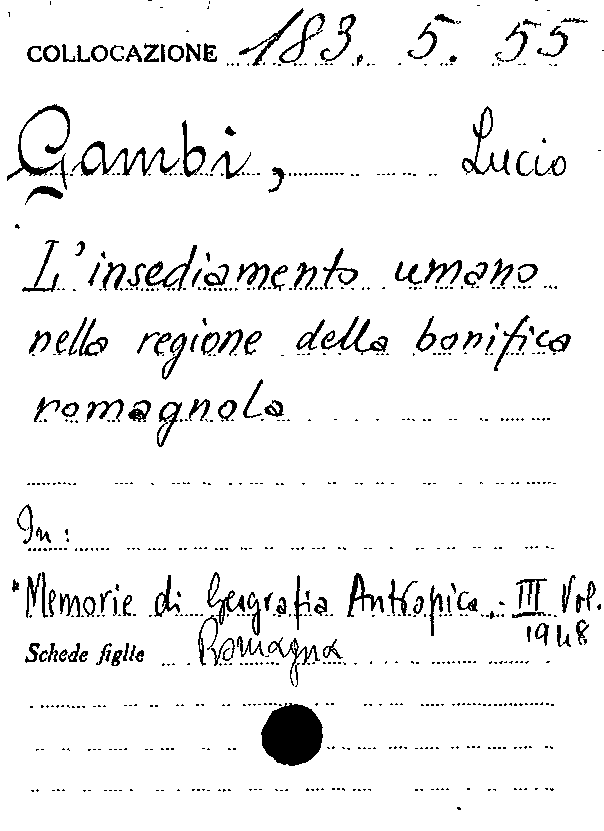 COLLOCAZIONE 183. 5. 55
Gambi, Lucio
L'insediamento umano
nella regione della bonifica
romagnola
In:
"Memorie di Geografia Antropica. - III Vol.
1948
Schede figlie Romagna